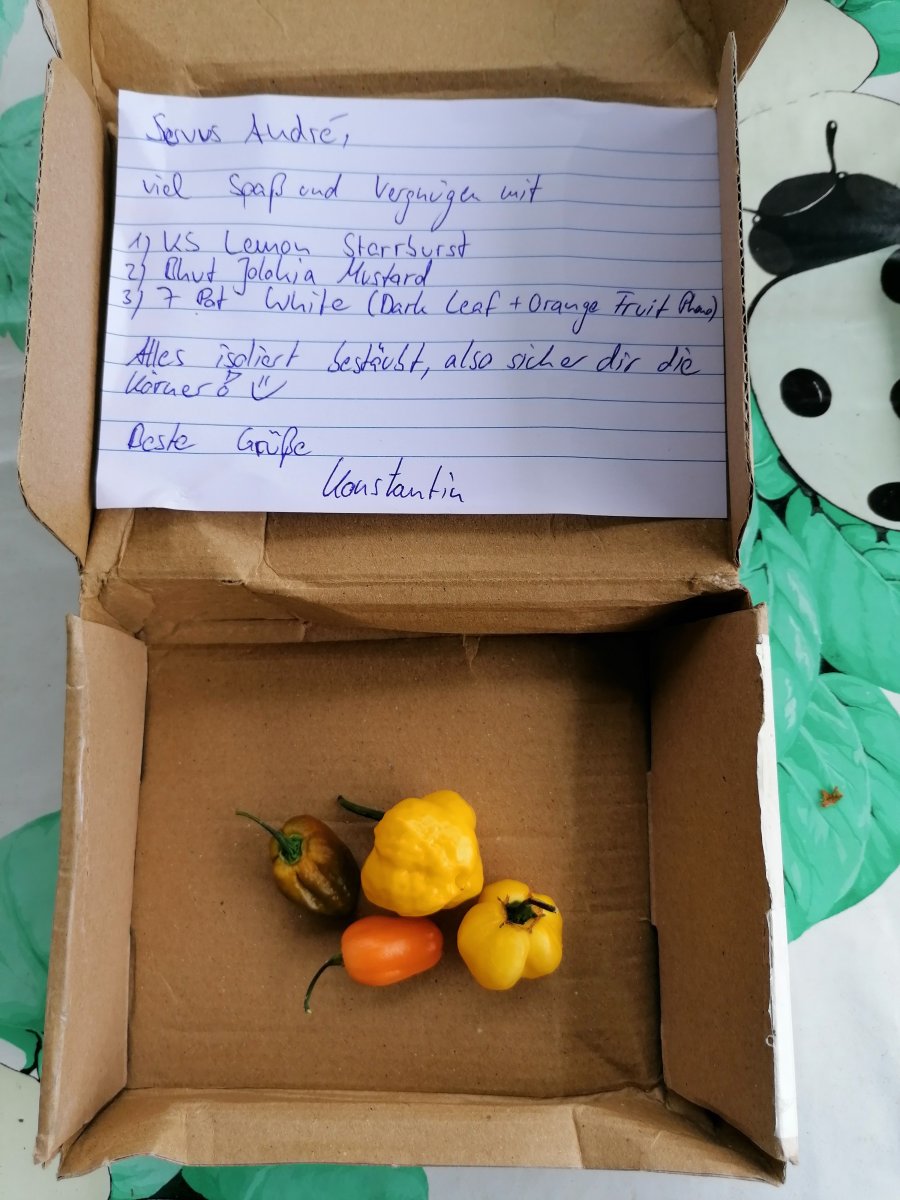 Servus André,
viel Spaß und Vergnügen mit
1) KS Lemon Starrburst
2) Bhut Jolokia Mustard
3) 7 Pot White (Dark Leaf + Orange Fruit Pheno)
Alles isoliert bestäubt, also sicher dir die
Körner! :)
Beste Grüße
Konstantin